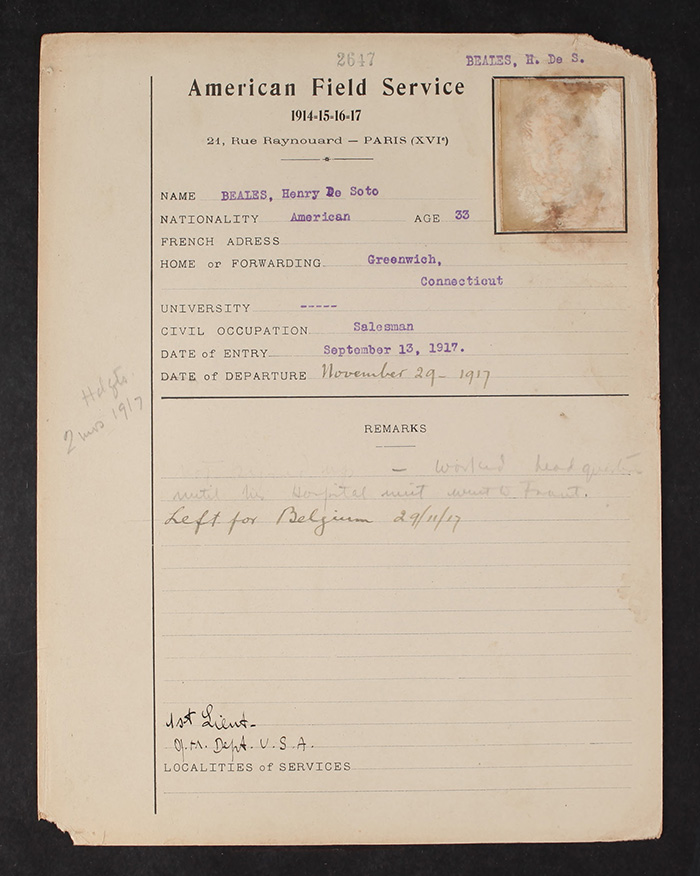 2647
BEALES, H. De S.
American Field Service
1914-15-16-17
21, Rue Raynouard — PARIS (XVIᵉ)
NAME BEALES, Henry De Soto
NATIONALITY American AGE 33
FRENCH ADRESS
HOME or FORWARDING Greenwich,
Connecticut
UNIVERSITY -----
CIVIL OCCUPATION Salesman
DATE of ENTRY September 13, 1917.
DATE of DEPARTURE November 29 - 1917
Hdqts
2 mos 1917
REMARKS
— worked headquarters
until his Hospital unit went to Front.
Left for Belgium 29/11/17
1st Lieut-
Q.M. Dept. U.S.A.
LOCALITIES of SERVICES